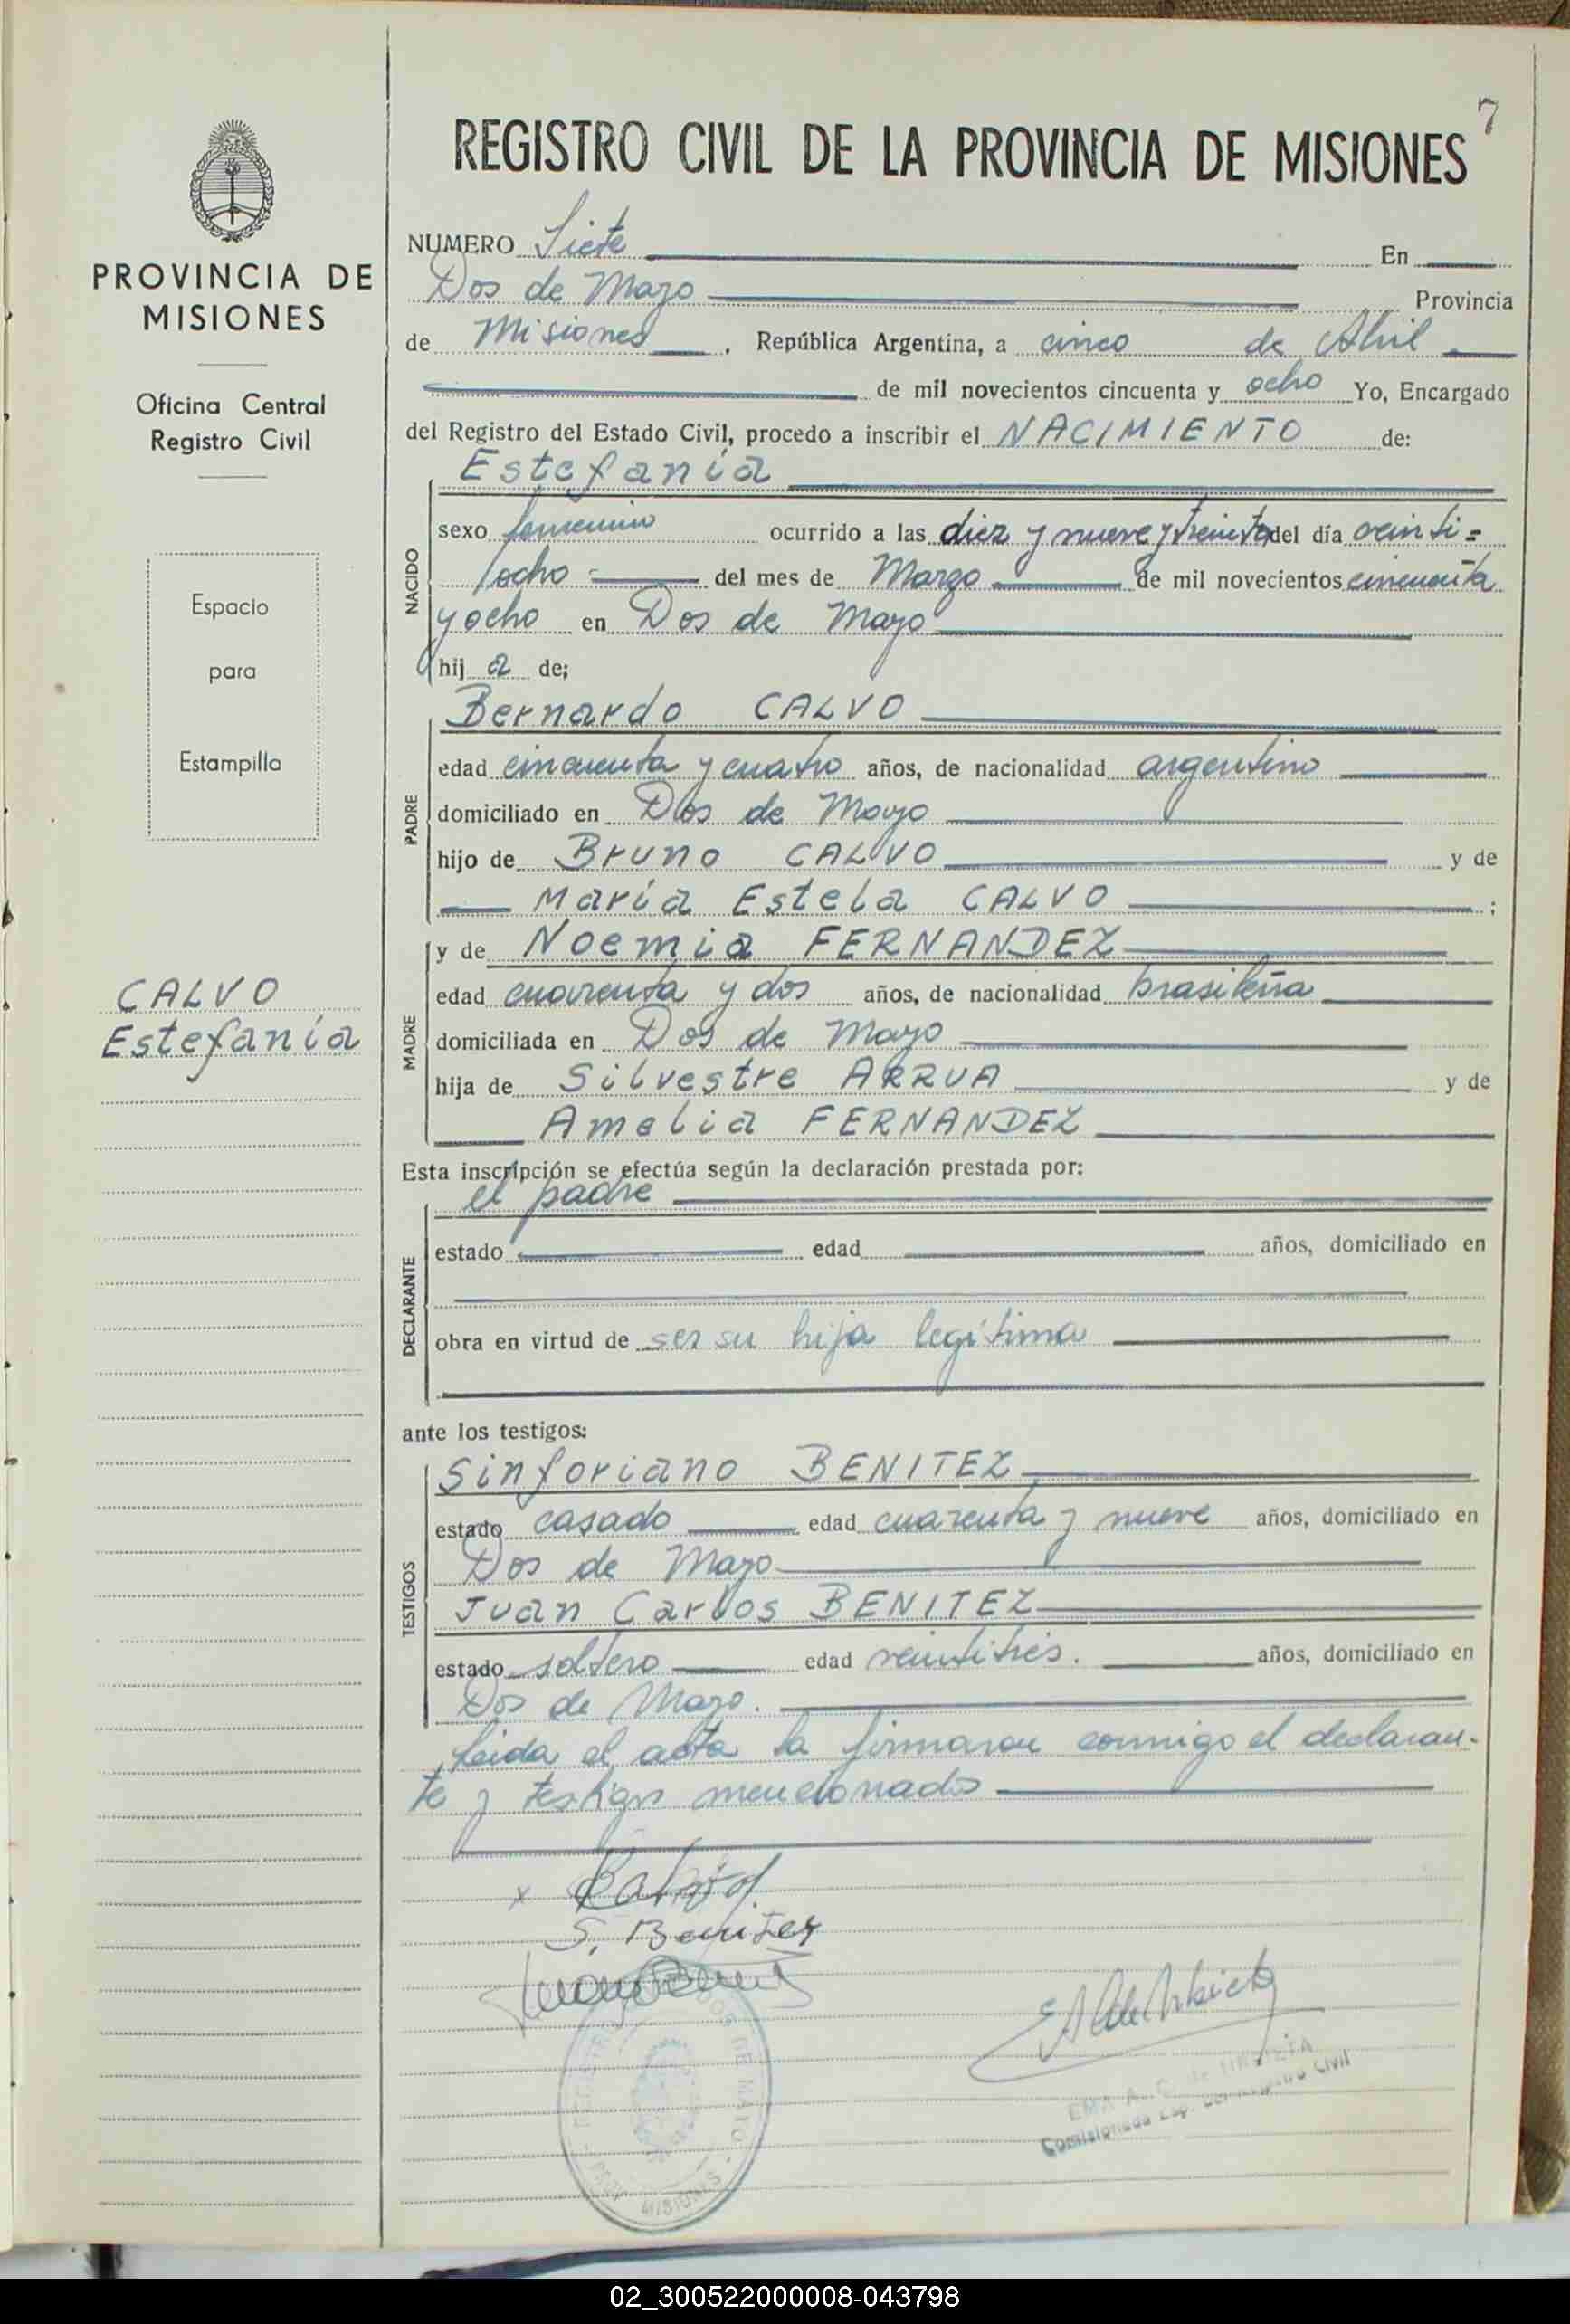 7
REGISTRO CIVIL DE LA PROVINCIA DE MISIONES
PROVINCIA DE
MISIONES
Oficina Central
Registro Civil
Espacio
para
Estampilla
CALVO
Estefanía
NUMERO Siete En
Dos de Mayo Provincia
de Misiones, República Argentina, a cinco de Abril
de mil novecientos cincuenta y ocho Yo, Encargado
del Registro del Estado Civil, procedo a inscribir el NACIMIENTO de:
NACIDO
Estefanía
sexo femenino ocurrido a las diez y nueve y treinta del día veinti=
ocho del mes de Marzo de mil novecientos cincuenta
y ocho en Dos de Mayo
hij a de;
PADRE
Bernardo CALVO
edad cincuenta y cuatro años, de nacionalidad argentino
domiciliado en Dos de Mayo
hijo de Bruno CALVO y de
María Estela CALVO ;
MADRE
y de Noemia FERNANDEZ
edad cuarenta y dos años, de nacionalidad brasileña
domiciliada en Dos de Mayo
hija de Silvestre ARRUA y de
Amelia FERNANDEZ
Esta inscripción se efectúa según la declaración prestada por:
DECLARANTE
el padre
estado edad años, domiciliado en
obra en virtud de ser su hija legítima
ante los testigos:
TESTIGOS
Sinforiano BENITEZ
estado casado edad cuarenta y nueve años, domiciliado en
Dos de Mayo
Juan Carlos BENITEZ
estado soltero edad veintitrés. años, domiciliado en
Dos de Mayo.
Leida el acta la firmaron conmigo el declaran-
te y testigos mencionados
x
S. Benitez
EMA A. C. de URBIETA
Comisionada Esp. del Registro Civil
REGISTRO DOS DE MAYO
MISIONES
02_300522000008-043798